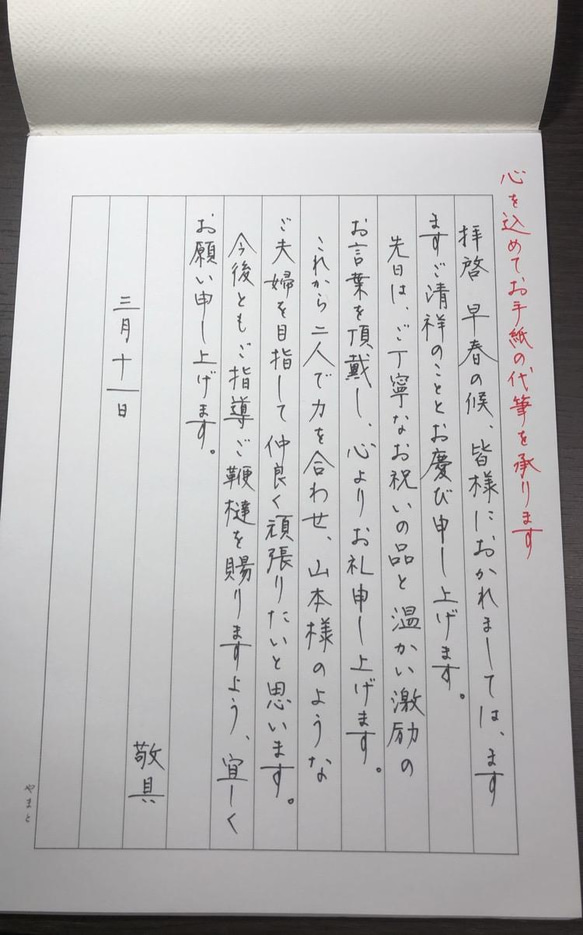 心を込めてお手紙の代筆を承ります
拝啓 早春の候、皆様におかれましては、ます
ますご清祥のこととお慶び申し上げます。
先日は、ご丁寧なお祝いの品と温かい激励の
お言葉を頂戴し、心よりお礼申し上げます。
これから二人で力を合わせ、山本様のような
ご夫婦を目指して仲良く頑張りたいと思います。
今後ともご指導ご鞭撻を賜りますよう、宜しく
お願い申し上げます。
三月十一日
敬具
やまと